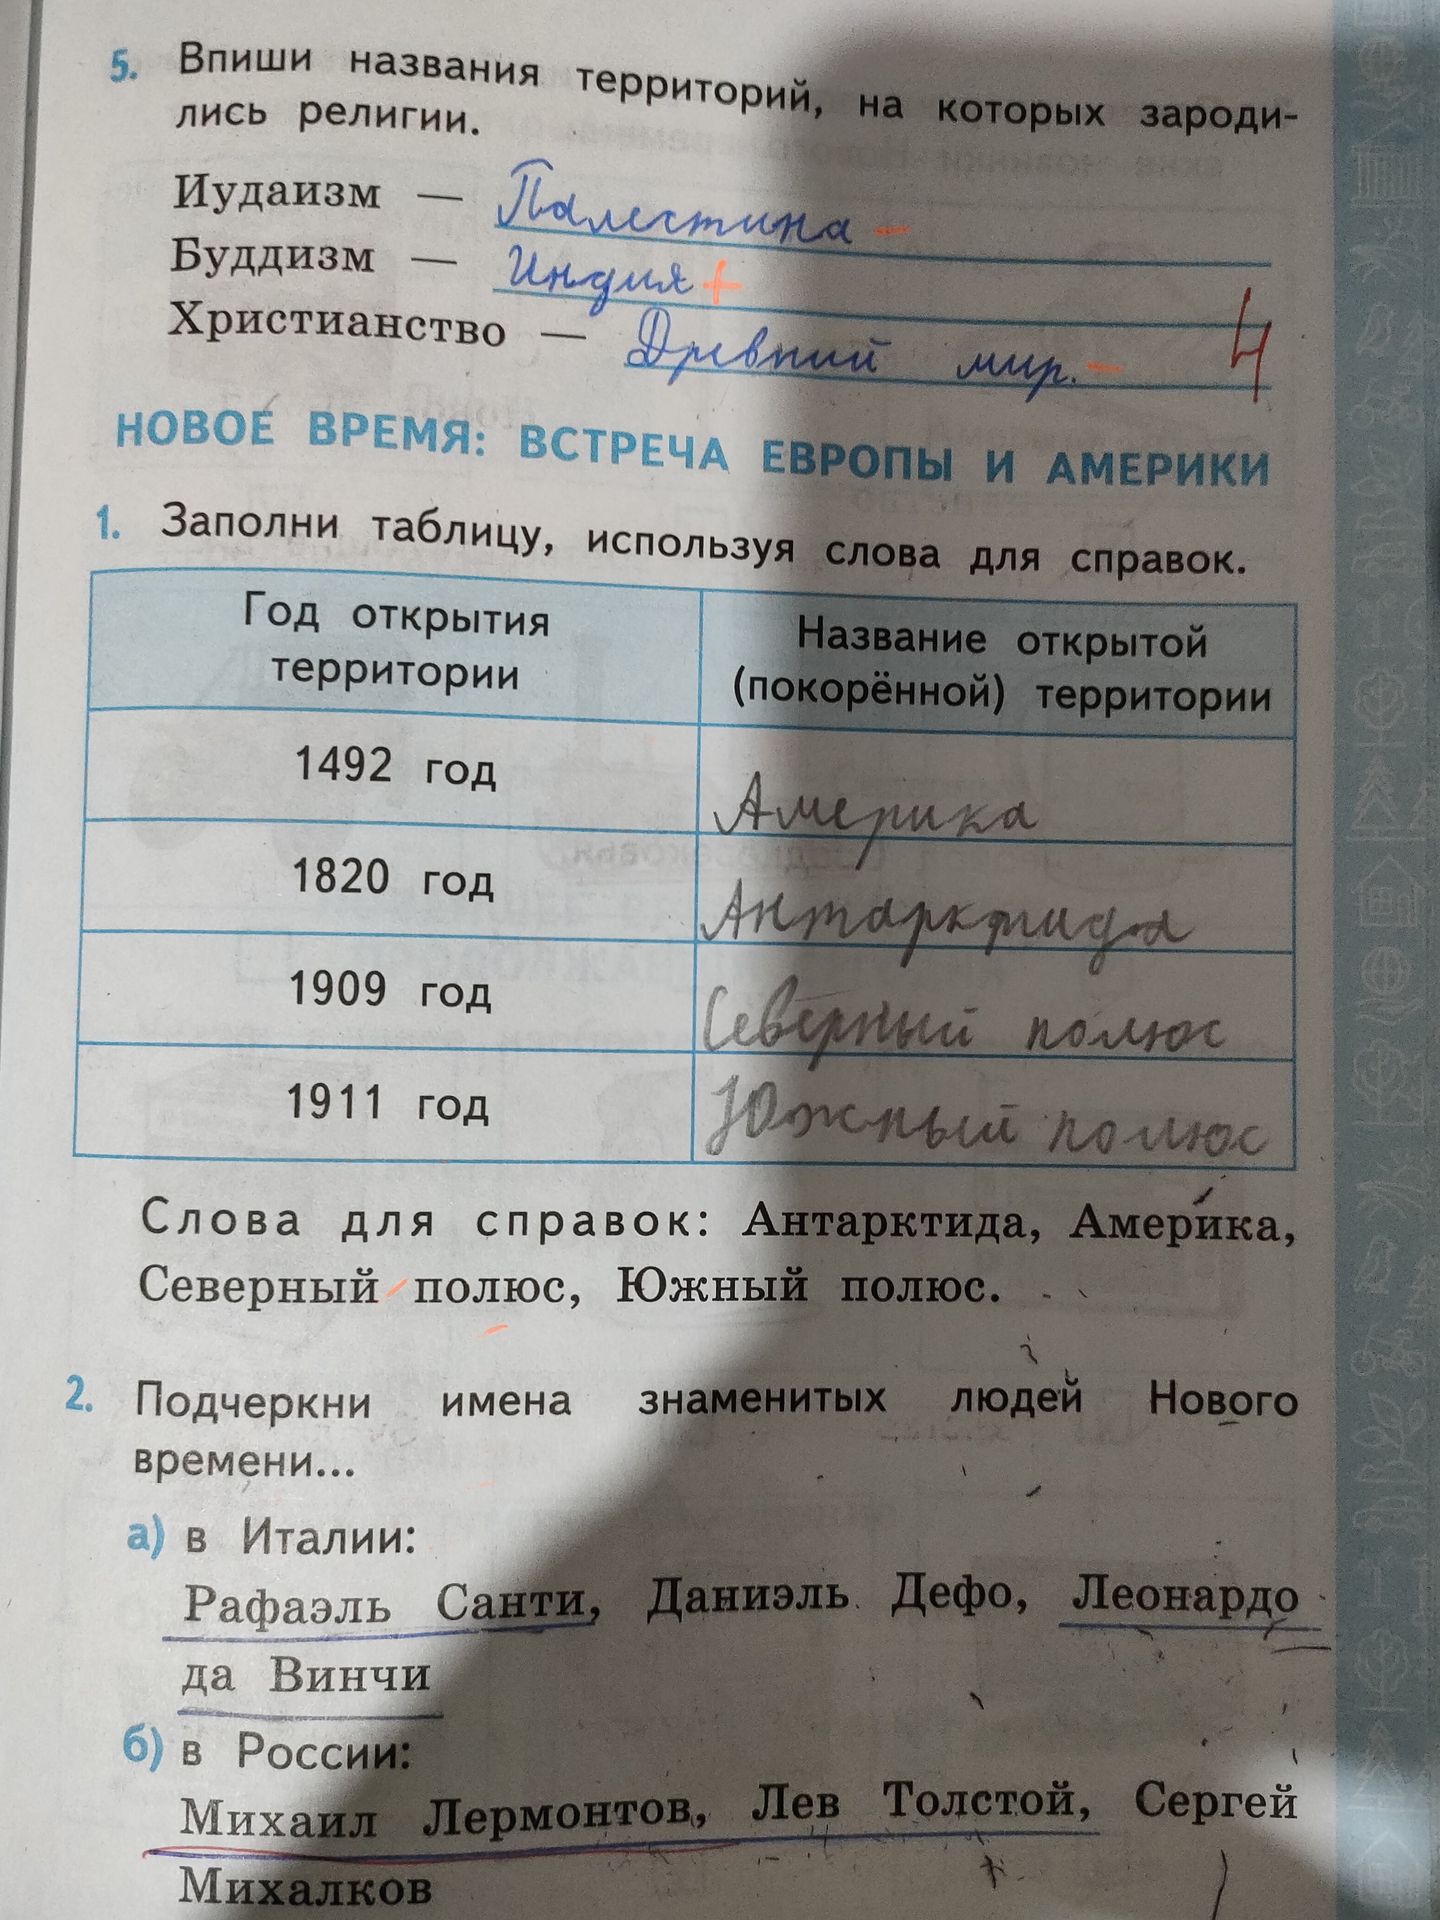 5. Впиши названия территорий, на которых зароди-
лись религии.
Иудаизм — Палестина -
Буддизм — Индия +
Христианство — Древний мир. -
4
НОВОЕ ВРЕМЯ: ВСТРЕЧА ЕВРОПЫ И АМЕРИКИ
1. Заполни таблицу, используя слова для справок.
Год открытия территории
Название открытой (покорённой) территории
1492 год Америка
1820 год Антарктида
1909 год Северный полюс
1911 год Южный полюс
Слова для справок: Антарктида, Америка,
Северный полюс, Южный полюс.
2. Подчеркни имена знаменитых людей Нового
времени...
а) в Италии:
Рафаэль Санти, Даниэль Дефо, Леонардо
да Винчи
б) в России:
Михаил Лермонтов, Лев Толстой, Сергей
Михалков